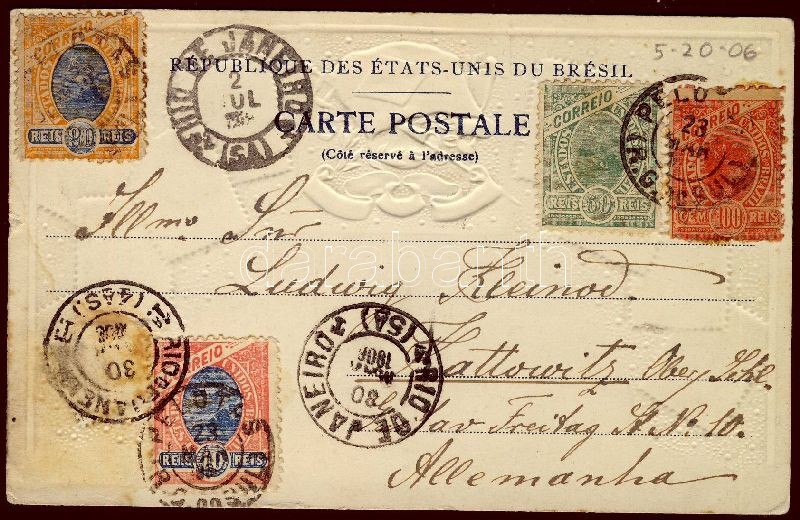 5-20-06
RÉPUBLIQUE DES ÉTATS-UNIS DU BRÉSIL
CARTE POSTALE
(Côté réservé à l'adresse)
CORREIO
REIS 20 REIS
RIO DE JANEIRO
2
JUL
(5A)
CORREIO
ESTADOS
REIS 50 REIS
PELO
23
CORREIO
CEM 100 REIS
Illmo Snr
Ludwig Kleinod
Kattowitz Ober Schl.
Gustav Freitag St N. 10.
Allemanha
RIO DE JANEIRO
(4AS.)
30
CORREIO
REIS REIS
23
RIO DE JANEIRO
(5A)
30
carabarth